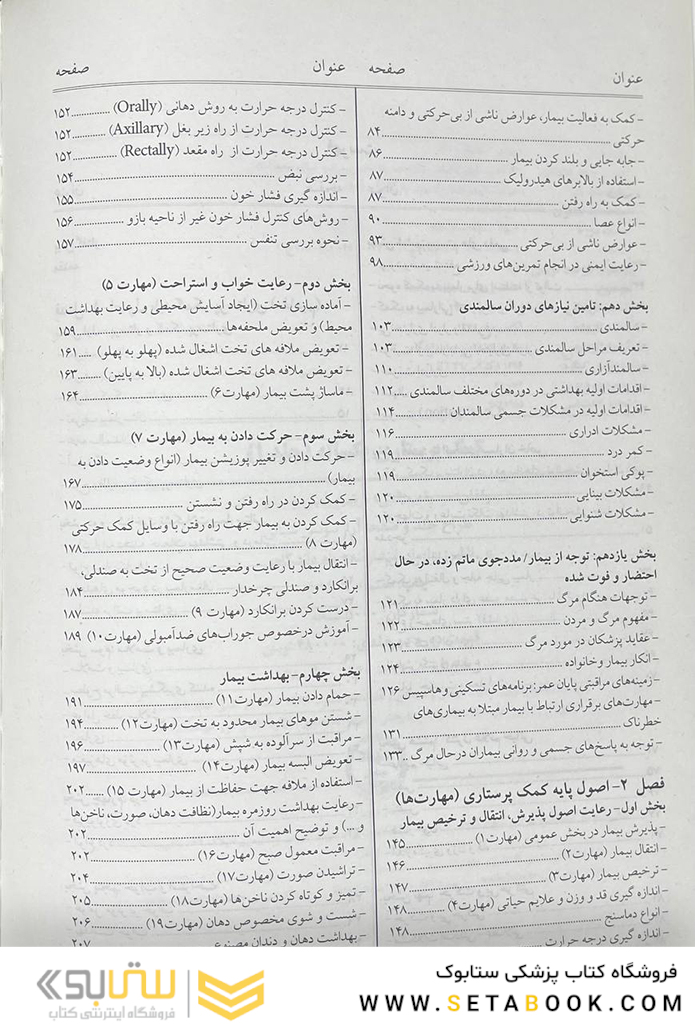 عنوان صفحه
- کمک به فعالیت بیمار، عوارض ناشی از بی‌حرکتی و دامنه
حرکتی ..... ۸۴
- جابه جایی و بلند کردن بیمار ..... ۸۶
- استفاده از بالابرهای هیدرولیک ..... ۸۷
- کمک به راه رفتن ..... ۸۷
- انواع عصا ..... ۹۰
- عوارض ناشی از بی‌حرکتی ..... ۹۳
- رعایت ایمنی در انجام تمرین‌های ورزشی ..... ۹۸
بخش دهم: تامین نیازهای دوران سالمندی
- سالمندی ..... ۱۰۳
- تعریف مراحل سالمندی ..... ۱۰۳
- سالمندآزاری ..... ۱۱۰
- اقدامات اولیه بهداشتی در دوره‌های مختلف سالمندی ..... ۱۱۲
- اقدامات اولیه در مشکلات جسمی سالمندان ..... ۱۱۴
- مشکلات ادراری ..... ۱۱۶
- کمر درد ..... ۱۱۹
- پوکی استخوان ..... ۱۱۹
- مشکلات بینایی ..... ۱۲۰
- مشکلات شنوایی ..... ۱۲۰
بخش یازدهم: توجه از بیمار/ مددجوی ماتم زده، در حال
احتضار و فوت شده
- توجهات هنگام مرگ ..... ۱۲۱
- مفهوم مرگ و مردن ..... ۱۲۲
- عقاید پزشکان در مورد مرگ ..... ۱۲۳
- انکار بیمار وخانواده ..... ۱۲۴
- زمینه‌های مراقبتی پایان عمر: برنامه‌های تسکینی و هاسپیس ۱۲۶
- مهارت‌های برقراری ارتباط با بیمار مبتلا به بیماری‌های
خطرناک ..... ۱۳۱
- توجه به پاسخ‌های جسمی و روانی بیماران درحال مرگ ..... ۱۳۳
فصل ۲- اصول پایه کمک پرستاری (مهارت‌ها)
بخش اول- رعایت اصول پذیرش، انتقال و ترخیص بیمار
- پذیرش بیمار در بخش عمومی (مهارت۱) ..... ۱۴۵
- انتقال بیمار (مهارت۲) ..... ۱۴۶
- ترخیص بیمار (مهارت۳) ..... ۱۴۷
- اندازه گیری قد و وزن و علایم حیاتی (مهارت۴) ..... ۱۴۸
- انواع دماسنج ..... ۱۴۸
- اندازه گیری درجه حرارت
عنوان صفحه
- کنترل درجه حرارت به روش دهانی (Orally) ..... ۱۵۲
- کنترل درجه حرارت از راه زیر بغل (Axillary) ..... ۱۵۲
- کنترل درجه حرارت از راه مقعد (Rectally) ..... ۱۵۲
- بررسی نبض ..... ۱۵۴
- اندازه گیری فشار خون ..... ۱۵۵
- روش‌های کنترل فشار خون غیر از ناحیه بازو ..... ۱۵۶
- نحوه بررسی تنفس ..... ۱۵۷
بخش دوم- رعایت خواب و استراحت (مهارت ۵)
- آماده سازی تخت (ایجاد آسایش محیطی و رعایت بهداشت
محیط) و تعویض ملحفه‌ها ..... ۱۵۹
- تعویض ملافه های تخت اشغال شده (پهلو به پهلو) ..... ۱۶۱
- تعویض ملافه های تخت اشغال شده (بالا به پایین) ..... ۱۶۳
- ماساژ پشت بیمار (مهارت۶) ..... ۱۶۴
بخش سوم- حرکت دادن به بیمار (مهارت ۷)
- حرکت دادن و تغییر پوزیشن بیمار (انواع وضعیت دادن به
بیمار) ..... ۱۶۷
- کمک کردن در راه رفتن و نشستن ..... ۱۷۵
- کمک کردن به بیمار جهت راه رفتن با وسایل کمک حرکتی
(مهارت ۸) ..... ۱۷۸
- انتقال بیمار با رعایت وضعیت صحیح از تخت به صندلی،
برانکارد و صندلی چرخدار ..... ۱۸۴
- درست کردن برانکارد (مهارت ۹) ..... ۱۸۷
- آموزش درخصوص جوراب‌های ضدآمبولی (مهارت۱۰) ۱۸۹
بخش چهارم- بهداشت بیمار
- حمام دادن بیمار (مهارت۱۱) ..... ۱۹۱
- شستن موهای بیمار محدود به تخت (مهارت۱۲) ..... ۱۹۴
- مراقبت از سرآلوده به شپش (مهارت۱۳) ..... ۱۹۶
- تعویض البسه بیمار (مهارت۱۴) ..... ۱۹۷
- استفاده از ملافه جهت حفاظت از بیمار (مهارت ۱۵) ..... ۲۰۲
- رعایت بهداشت روزمره بیمار(نظافت دهان، صورت، ناخن‌ها
و ...) و توضیح اهمیت آن ..... ۲۰۲
- مراقبت معمول صبح (مهارت۱۶) ..... ۲۰۲
- تراشیدن صورت (مهارت۱۷) ..... ۲۰۴
- تمیز و کوتاه کردن ناخن‌ها (مهارت۱۸) ..... ۲۰۵
- شست و شوی مخصوص دهان (مهارت۱۹) ..... ۲۰۶
- بهداشت دهان و دندان مصنوعی ..... ۲۰۷
فروشگاه کتاب پزشکی ستابوک
WWW.SETABOOK.COM
ستابوک
فروشگاه اینترنتی کتاب